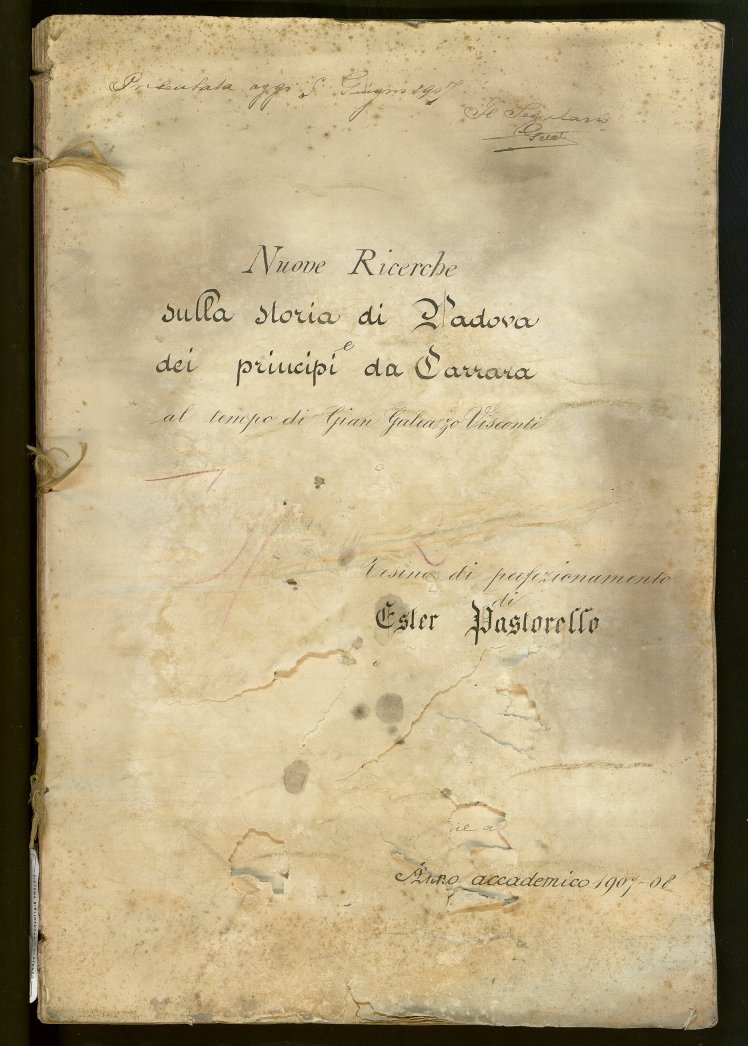 Presentata oggi 5 Giugno 1907
Il Segretario
Nuove Ricerche
sulla storia di Padova
e
dei principi da Carrara
al tempo di Gian Galeazzo Visconti
Tesina di perfezionamento
di
Ester Pastorello
Anno accademico 1907-08